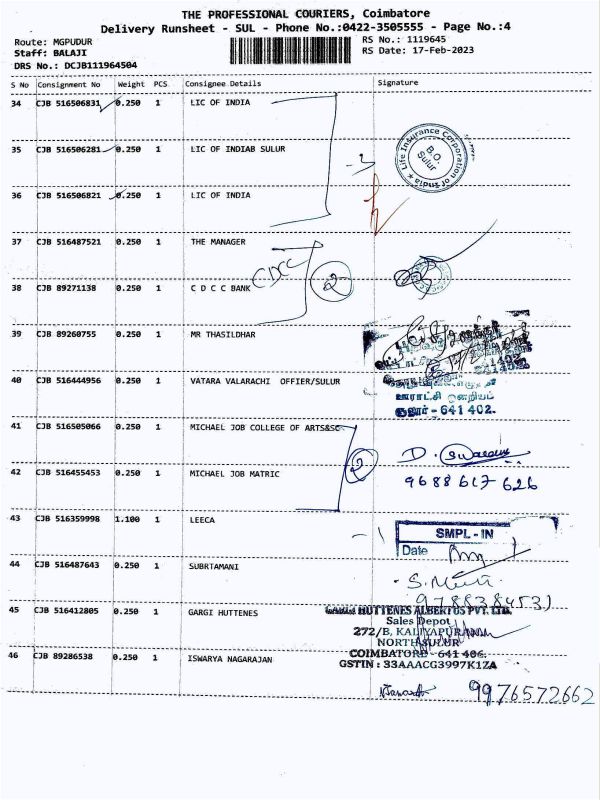 THE PROFESSIONAL COURIERS, Coimbatore
Delivery Runsheet - SUL - Phone No.:0422-3505555 - Page No.:4
Route: MGPUDUR
RS No.: 1119645
Staff: BALAJI
RS Date: 17-Feb-2023
DRS No.: DCJB111964504
S No Consignment No Weight PCS Consignee Details Signature
34 CJB 516506831 0.250 1 LIC OF INDIA
35 CJB 516506281 0.250 1 LIC OF INDIAB SULUR
Life Insurance Corporation of India
B.O.
Sulur
3
36 CJB 516506821 0.250 1 LIC OF INDIA
37 CJB 516487521 0.250 1 THE MANAGER
CDCC
2
38 CJB 89271138 0.250 1 C D C C BANK
39 CJB 89260755 0.250 1 MR THASILDHAR
40 CJB 516444956 0.250 1 VATARA VALARACHI OFFIER/SULUR
ஊராட்சி ஒன்றியம்
சூலூர் - 641 402.
41 CJB 516505066 0.250 1 MICHAEL JOB COLLEGE OF ARTS&SC
2
42 CJB 516455453 0.250 1 MICHAEL JOB MATRIC
9688617626
43 CJB 516359998 1.100 1 LEECA
- 1
SMPL - IN
Date
44 CJB 516487643 0.250 1 SUBRTAMANI
45 CJB 516412805 0.250 1 GARGI HUTTENES
GARGI HUTTENES ALBERTUS PVT. LTD.
Sales Depot
272/B, KALIYAPURAM
NORTH SULUR
COIMBATORE - 641 406.
GSTIN : 33AAACG3997K1ZA
46 CJB 89286538 0.250 1 ISWARYA NAGARAJAN
9976572662